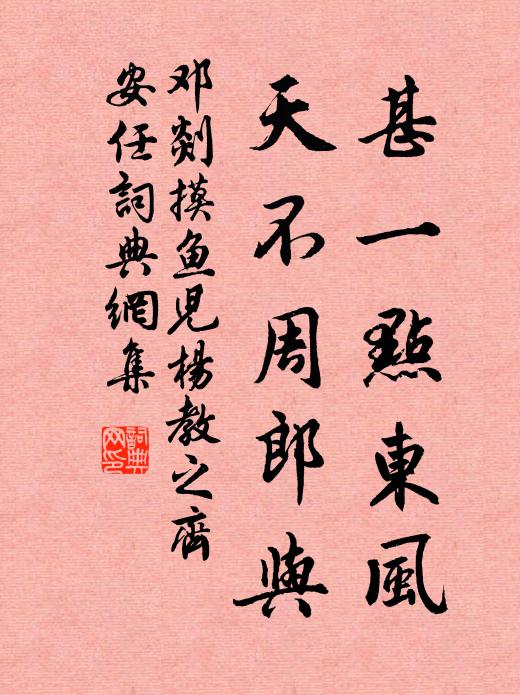 甚一點東風
天不周郎與
邓剡摸魚児楊教之齊
安任詞典網集
詞典
网印